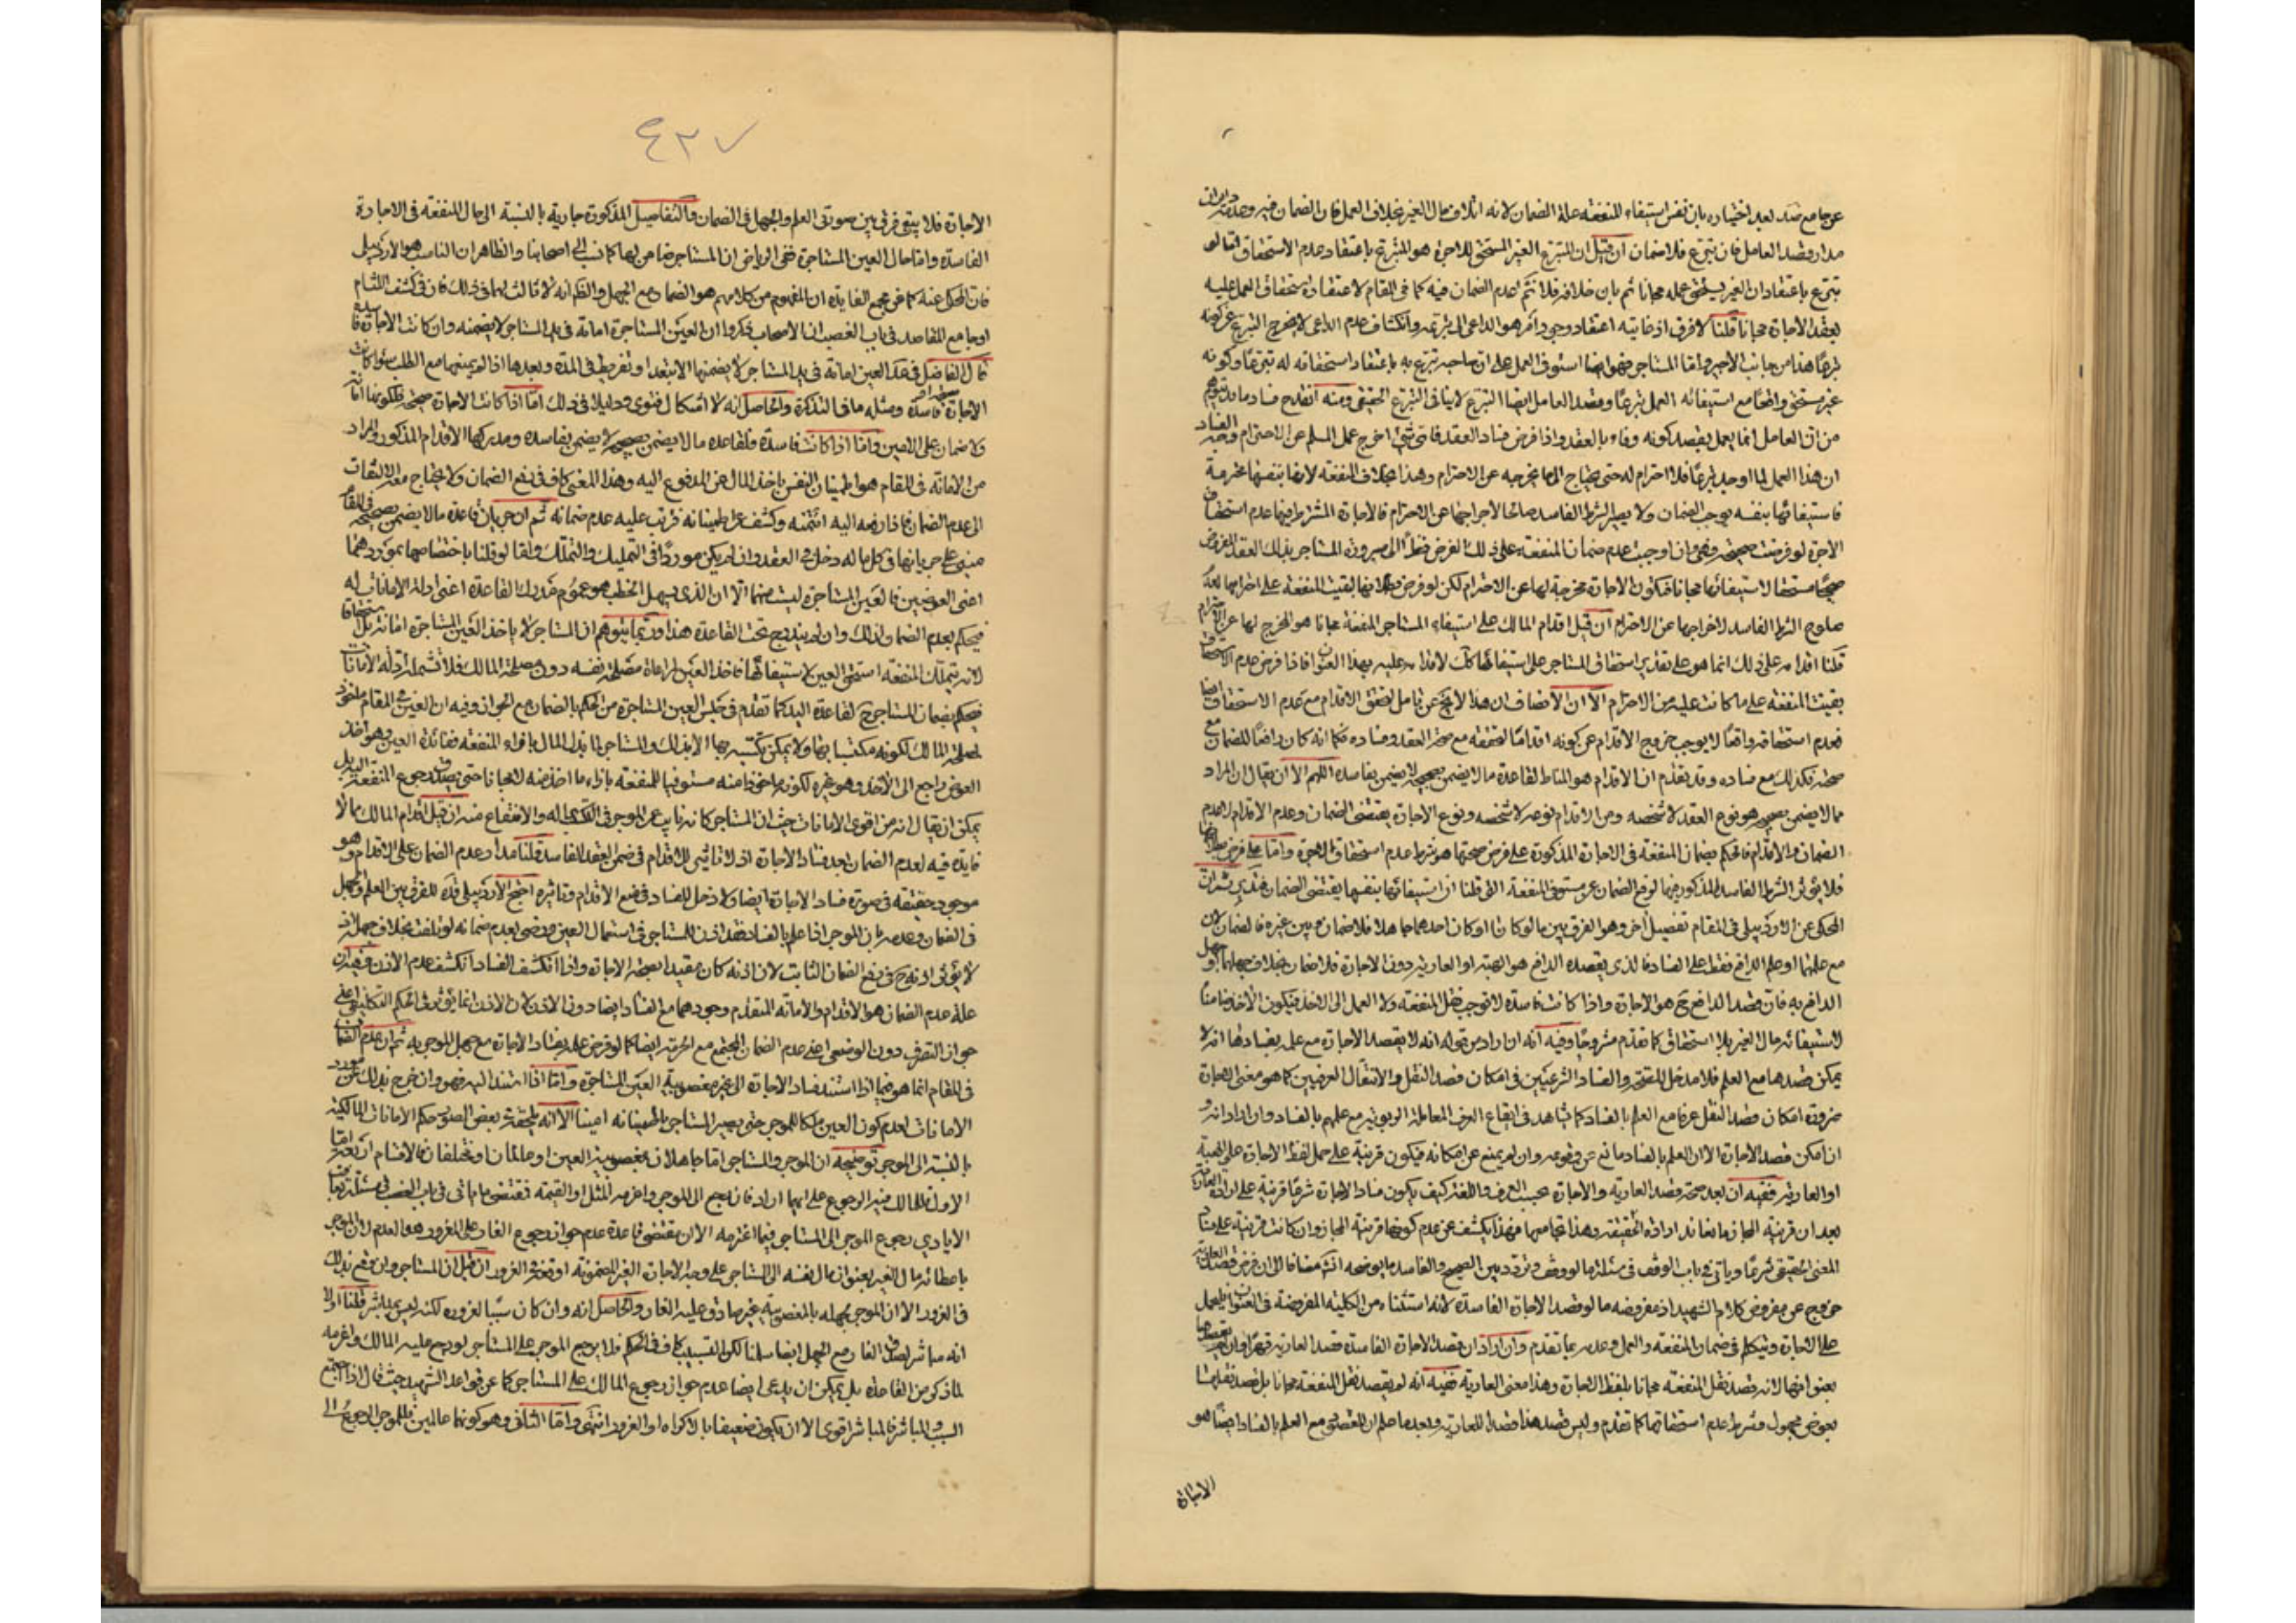 عن جامع صد بعد اختياره بان نفس استيفاء المنفعة علة الضمان لانه اتلاف مال الغير بخلاف العمل فان الضمان فيه وعدمه
مدار قصد العامل فان تبرع فلا ضمان ان قيل ان المتبرع الغير المستحق للاجرة هو المتبرع باعتقاد عدم الاستحقاق
تبرع باعتقاد ان الغير يستحق عمله مجانا ثم بان خلافه فلا نم عدم الضمان فيه كما في المقام لاعتقاده استحقاق العمل عليه
بعقد الاجارة مجانا قلنا لا فرق اذ غايته اعتقاد وجود امر هو الداعي الى تبرعه وانكشاف عدم الداعي لا يخرج التبرع عن كونه
تبرعا هذا من جانب الاجير واما المستاجر فهو ايضا استوفى العمل على ان صاحبه تبرع به باعتقاد استحقاقه له تبرعا وكونه
غير مستحق واقعا مع استيفائه العمل تبرعا وقصد العامل ايضا التبرع لا ينافي التبرع الحقيقي ومنه انقدح فساد ما يتوهم
من ان العامل انما يعمل بقصد كونه وفاء بالعقد واذا فرض فساد العقد فاي شيء اخرج عمل المسلم عن الاحترام وجه الفساد
ان هذا العمل لما اوجد تبرعا فلا احترام له حتى يحتاج الى ما يخرجه عن الاحترام وهذا بخلاف المنفعة لانها بنفسها محترمة
فاستيفائها بنفسه يوجب الضمان ولا يصير الشرط الفاسد صالحا لاخراجها عن الاحترام فالاجارة المشترط فيها عدم استحقاق
الاجرة لو فرضت صحيحة فهي وان اوجبت عدم ضمان المنفعة على ذلك الفرض نظرا الى صيرورة المستاجر بذلك العقد المفروض
صحيحا مستحقا لاستيفائها مجانا فتكون الاجارة مخرجة لها عن الاحترام لكن لو فرض بطلانها بقيت المنفعة على احترامها لعدم
صلوح الشرط الفاسد لاخراجها عن الاحترام ان قيل اقدام المالك على استيفاء المستاجر المنفعة مجانا هو المخرج لها عن الاحترام
قلنا اقدامه على ذلك انما هو على تقدير استحقاق المستاجر على استيفائها كك لاقدامه عليه بهذا العنوان فاذا فرض عدم الاستحقاق
بقيت المنفعة على ما كانت عليه من الاحترام الا ان الانصاف ان هذا لا يخ عن تامل لتحقق الاقدام مع عدم الاستحقاق ايضا
فعدم استحقاقه واقعا لا يوجب خروج الاقدام عن كونه اقداما لتحققه مع صحة العقد وفساده فكما انه كان رافعا للضمان مع
صحته فكذلك مع فساده وقد تقدم ان الاقدام هو المناط لقاعدة ما لا يضمن بصحيحه لا يضمن بفاسده اللهم الا ان يقال ان المراد
مما لا يضمن بصحيحه هو نوع العقد لا شخصه ومن الاقدام نوعه لا شخصه ونوع الاجارة يقتضي الضمان وعدم الاقدام لعدم
الضمان لا الاقدام فالحكم بضمان المنفعة في الاجارة المذكورة على فرض صحتها هو شرط عدم استحقاق الاجرة واما على فرض بطلانها
فلا يؤثر الشرط الفاسد المذكور فيها لرفع الضمان عن مستوفي المنفعة التي قلنا ان استيفائها بنفسها يقتضي الضمان
المحكي عن الاردبيلي في المقام تفصيل اخر وهو الفرق بين ما لو كانا او كان احدهما جاهلا فلا ضمان وبين غيره فالضمان لان
مع علمهما او علم الدافع فقط على الفساد فالذي يقصده الدافع هو الهبة او العارية دون الاجارة فلا ضمان بخلاف جهلهما او جهل
الدافع به فان قصد الدافع ح هو الاجارة واذا كانت فاسدة لا توجب نقل المنفعة ولا العمل الى الاخذ فيكون الاخذ ضامنا
لاستيفائه مال الغير بلا استحقاق كما تقدم مشروحا وفيه انه ان اراد من قوله انه لا يقصد الاجارة مع علمه بفسادها انه لا
يمكن قصدها مع العلم فلا مدخل للصحة والفساد الشرعيين في امكان قصد النقل والانتقال العرفيين كما هو معنى الاجارة
ضرورة امكان قصد النقل عرفا مع العلم بالفساد كما نشاهد في ايقاع العرف المعاملة الربوية مع علمهم بالفساد وان اراد انه
ان امكن قصد الاجارة الا ان العلم بالفساد مانع عن وقوعه وان لم يمنع عن امكانه فيكون قرينة على حمل لفظ الاجارة على الهبة
او العارية ففيه ان بعد صحة قصد العارية والاجارة بحسب العرف واللغة كيف يكون فساد الاجارة شرعا قرينة على ارادة العارية
بعد ان قرينة المجاز ما يعاند ارادة الحقيقة وهذا يجامعها فهذا يكشف عن عدم كونها قرينة المجاز وان كانت قرينة على فساد
المعنى الحقيقي شرعا وياتي في باب الوقف في مسئلة ما لو وقف وتردد بين الصحيح والفاسد ما يوضحه انش مضافا الى ان فرض قصد العارية
خروج عن مفروض كلام الشهيد اذ مفروضه ما لو قصد الاجارة الفاسدة لانه استثناء من الكلية المفروضة في العنوان فليحمل
على الاجارة ويتكلم في ضمان المنفعة والعمل وعدمه بما تقدم وان اراد ان قصد الاجارة الفاسدة قصد العارية قهرا وان لم يقصدها
بعنوانها لانه قصد نقل المنفعة مجانا بلفظ الاجارة وهذا معنى العارية ففيه انه لم يقصد نقل المنفعة مجانا بل قصد نقلها
بعوض مجهول وشرط عدم استحقاقها كما تقدم وليس قصد هذا قصدا للعارية وبعد ما علم ان المقصود مع العلم بالفساد ايضا هو
الاجارة
٤٣٧
الاجارة فلا يبقى فرق بين صورتي العلم والجهل في الضمان والتفاصيل المذكورة جارية بالنسبة الى حال المنفعة في الاجارة
الفاسدة واما حال العين المستاجرة ففي الرياض ان المستاجر ضامن لها كما نسب الى اصحابنا والظاهر ان الناسب هو الاردبيلي
فان المحكي عنه كما في مجمع الفايدة ان المفهوم من كلامهم هو الضمان مع الجهل والظ انه لا ثالث لهما في ذلك فان في كشف اللثام
او جامع المقاصد في باب الغصب ان الاصحاب ذكروا ان العين المستاجرة امانة في يد المستاجر لا يضمنه وان كانت الاجارة فاسدة
قال الفاضل في عد العين امانة في يد المستاجر لا يضمنها الا بتعد او تفريط في المدة وبعدها اذا لم يمنعها مع الطلب سواء كانت
الاجارة صحيحة او فاسدة ومثله ما في التذكرة والحاصل انه لا اشكال فتوى ودليلا في ذلك اما اذا كانت الاجارة صحيحة فلكونها امانة
ولا ضمان على الامين واما اذا كانت فاسدة فلقاعدة ما لا يضمن بصحيحه لا يضمن بفاسده ومدركها الاقدام المذكور والمراد
من الامانة في المقام هو اطمينان النفس باخذ المال من المدفوع اليه وهذا المعنى كاف في رفع الضمان ولا يحتاج معه الى التفات
الى عدم الضمان فاذا رفعه اليه ائتمنه وكشف عن اطمينانه فرتب عليه عدم ضمانه ثم ان جريان قاعدة ما لا يضمن بصحيحه في المقام
مبني على جريانها في كل ما له دخل في العقد وان لم يكن موردا في التمليك والتملك واما لو قلنا باختصاصها بموردهما
اعني العوضين فالعين المستاجرة ليست منهما الا ان الذي يسهل الخطب هو عموم مدرك القاعدة اعني ادلة الامانات له
فيحكم بعدم الضمان لذلك وان لم يندرج تحت القاعدة هذا وربما يتوهم ان المستاجر لا ياخذ العين المستاجرة امانة بل مستحقا
لانه بتملك المنفعة استحق العين لاستيفائها فاخذ العين لمراعاة مصلحة نفسه دون مصلحة المالك فلا تشمله ادلة الامانات
فيحكم بضمان المستاجر ح لقاعدة اليد كما تقدم في حبس العين المستاجرة من الحكم بالضمان مع الجواز وفيه ان العين في المقام ماخوذ
لمصلحة المالك لكونه مكتسبا بها ولا يمكن تكسبه بها الا بذلك والمستاجر لما بذل المال بازاء المنفعة ففائدة العين وهو اخذ
العوض راجع الى الاخذ وهو غيره لكونه ماخوذا منه مستوفيا للمنفعة بازاء ما اخذ منه لا مجانا حتى يصدق رجوع المنفعة اليه بل
يمكن ان يقال انه من اقوى الامانات حيث ان المستاجر كانه نايب عن الموجر في التكسب له والانتفاع منه ان قيل اقدام المالك مما لا
فايدة فيه لعدم الضمان بعد فساد الاجارة اذ لا تاثير للاقدام في ضمن العقد الفاسد قلنا مدار عدم الضمان على الاقدام وهو
موجود حقيقة في صورة فساد الاجارة ايضا ولا دخل للفساد في رفع الاقدام وتاثيره احتج الاردبيلي قده للفرق بين العلم والجهل
في الضمان وعدمه بان الموجر اذا علم بالفساد فقد اذن للمستاجر في استعمال العين ورضي بعدم ضمانه لو تلفت بخلاف جهله اذ
لا يؤثر اذنه ح في رفع الضمان الثابت لان اذنه كان مقيدا بصحة الاجارة واذا انكشف الفساد انكشف عدم الاذن وفيه ان
علة عدم الضمان هو الاقدام والامانة المتقدم وجودهما مع الفساد ايضا دون الاذن لان الاذن انما يؤثر في الحكم التكليفي اعني
جواز التصرف دون الوضعي اعني عدم الضمان المجتمع مع الحرمة ايضا كما لو فرض علمه بفساد الاجارة مع جهل الموجر به ثم ان عدم الضمان
في المقام انما هو فيما اذا استند فساد الاجارة الى غير مغصوبية العين المستاجرة واما اذا استند اليه فهو وان خرج بذلك عن مورد
الامانات لعدم كون العين ملكا للموجر حتى يصير المستاجر باطمينانه امينا الا انه يلحقه في بعض الصور حكم الامانات المالكية
بالنسبة الى الموجر توضيحه ان الموجر والمستاجر اما جاهلان بمغصوبية العين او عالمان او مختلفان فالاقسام اربعة اما
الاول فللمالك فيه الرجوع على ايهما اراد فان رجع الى الموجر واغرمه المثل او القيمة فمقتضى ما ياتي في باب الغصب في مسئلة ترتب
الايادي رجوع الموجر الى المستاجر فيما اغترمه الا ان مقتضى قاعدة عدم جواز رجوع الغار على المغرور هو العدم لان الموجر
باعطائه مال الغير بعنوان مال نفسه الى المستاجر على وجه الاجارة الغير المضمونة اوقعه في الغرور ان قيل ان المستاجر وان وقع بذلك
في الغرور الا ان الموجر لجهله بالمغصوبية غير صادق عليه الغار والحاصل انه وان كان سببا لغروره لكنه لم يباشره قلنا اولا
انه مباشر لصدق الغار مع الجهل ايضا سلمنا لكن التسبيب كاف في الحكم فلا يرجع الموجر على المستاجر لو رجع عليه المالك واغرمه
لما ذكر من القاعدة بل يمكن ان يدعى ايضا عدم جواز رجوع المالك على المستاجر كما عن قواعد الشهيد حيث قال اذا اجتمع
السبب والمباشر فالمباشر اقوى الا ان يكون ضعيفا بالاكراه او الغرور انتهى واما الثاني وهو كونهما عالمين فللموجر الرجوع الى